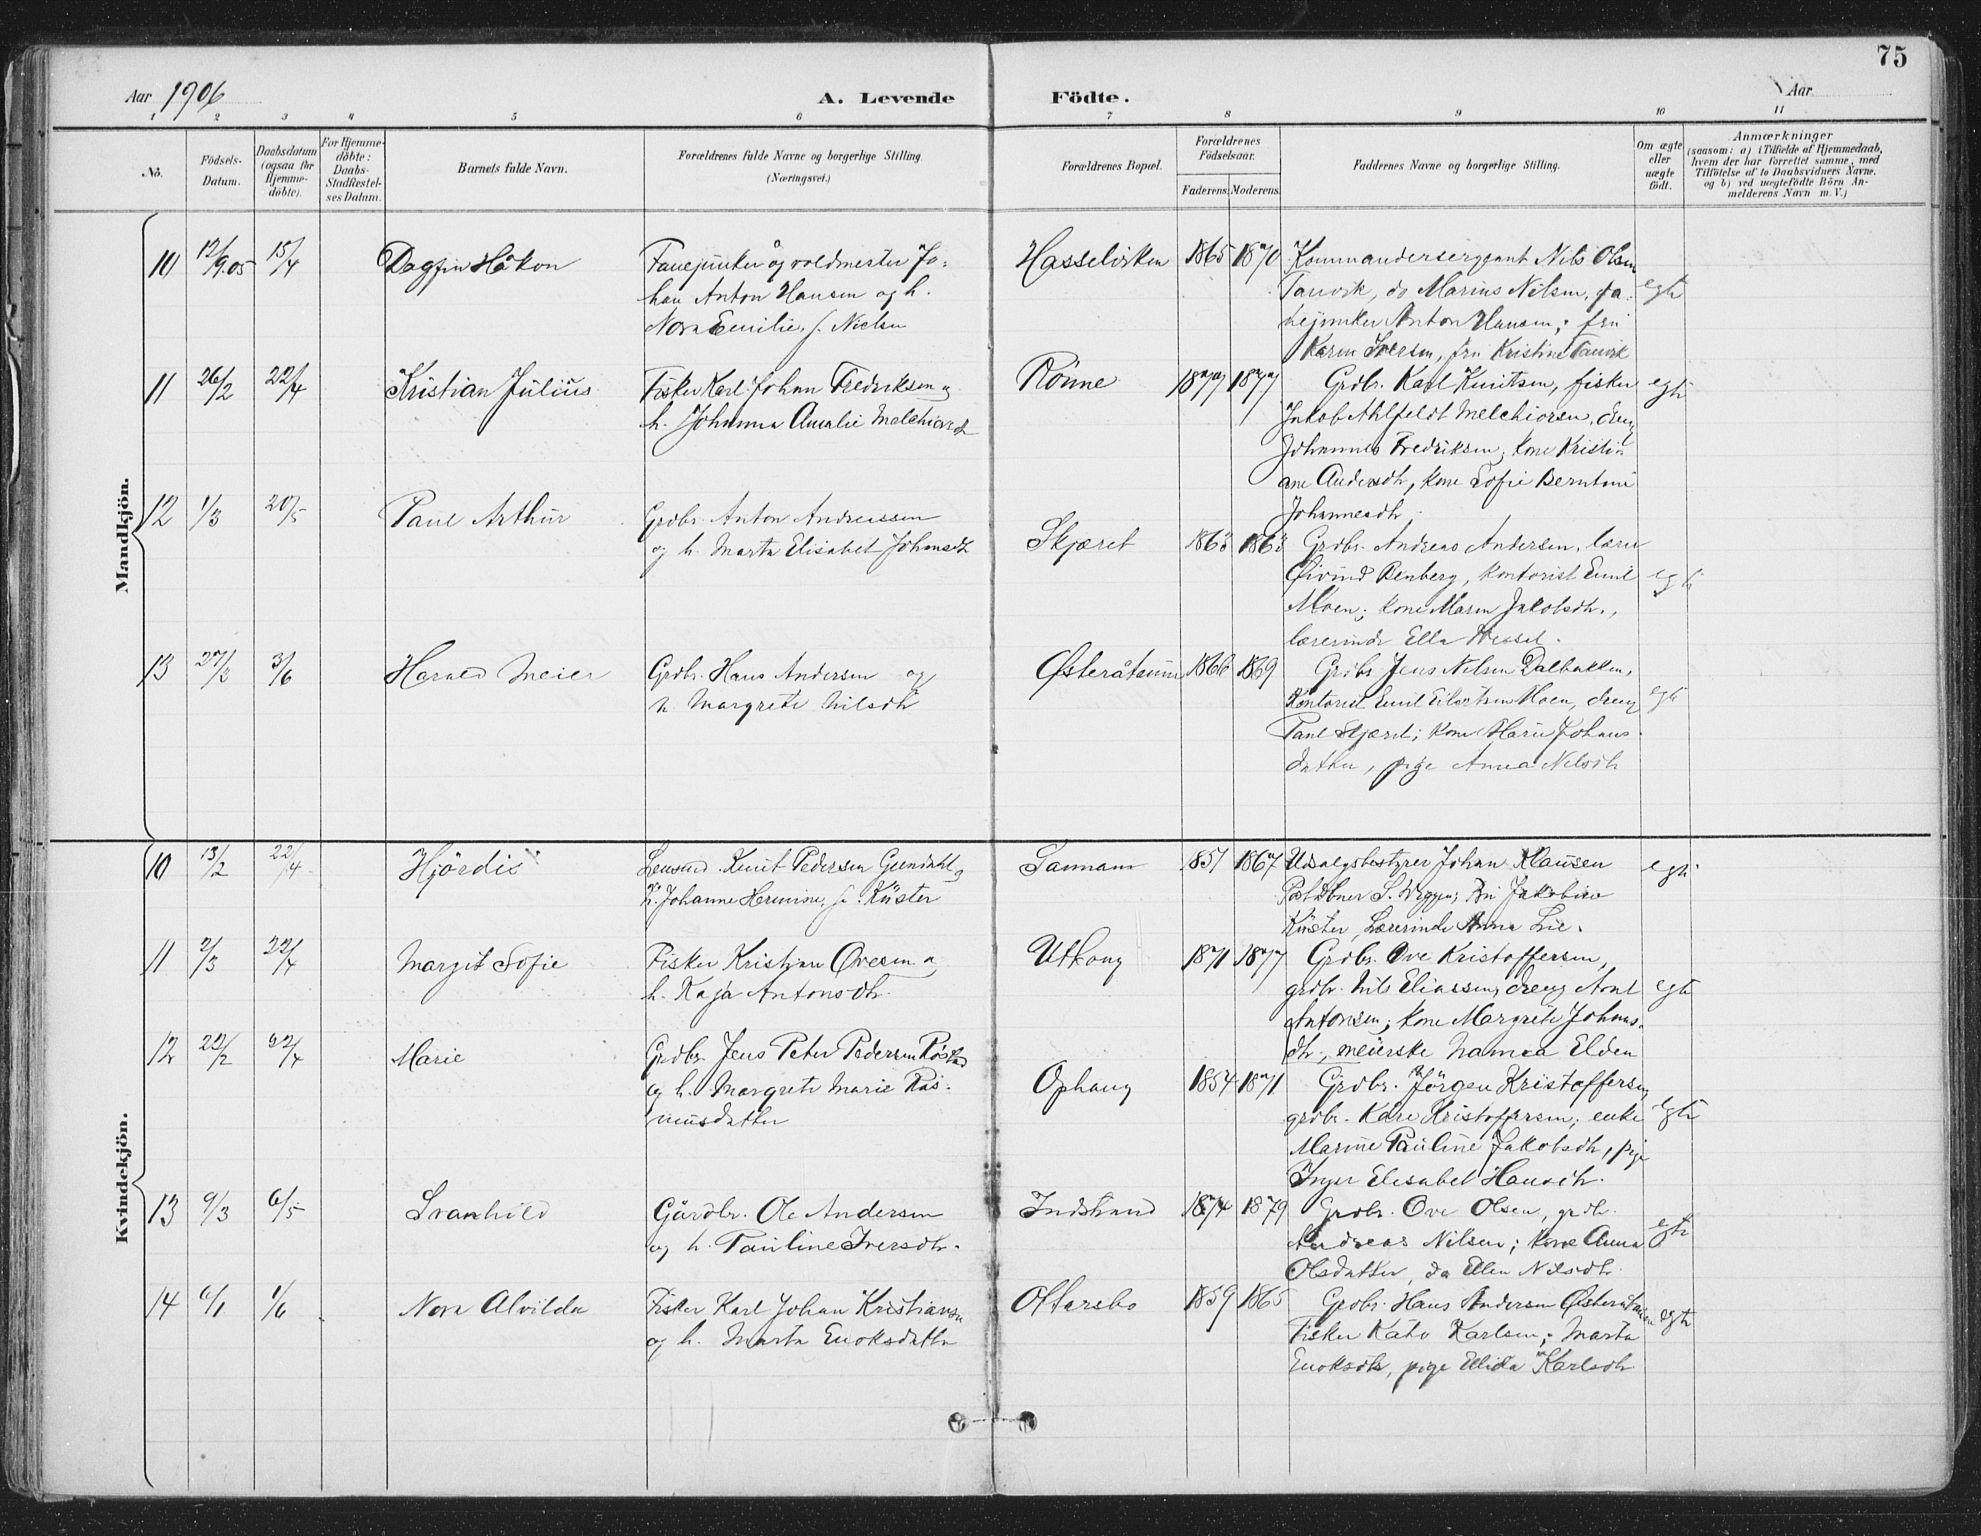 75
Aar 1906
A. Levende Födte.
Aar
1 2 3 4 5 6 7 8 9 10 11
No.
Födsels-Datum.
Daabsdatum (ogsaa for Hjemme-døbte).
For Hjemme-døbte: Daabs-Stadfæstel-ses Datum.
Barnets fulde Navn.
Forældrenes fulde Navne og borgerlige Stilling.
(Næringsvei.)
Forældrenes Bopæl.
Forældrenes Födselsaar.
Faderens. Moderens.
Faddernes Navne og borgerlige Stilling.
Om ægte eller uægte födt.
Anmærkninger
(saasom: a) i Tilfælde af Hjemmedaab,
hvem der har forrettet samme, med
Tilföielse af to Daabsvidners Navne,
og b) ved uægtefödte Börn An-
melderens Navn m. V.)
Mandkjön.
10 12/9.05 15/4 Dagfin Håkon
Fanejunker og voldmester Jo-
han Anton Hansen og h.
Nora Emilie, f. Nielsen
Hasselvirken 1865 1870
Kommandersergeant Nils Olsen
Tanvik, do Marius Nilsen, fa-
nejunker Anton Hansen; fru
Karen Iversen, fru Kristine Tanvik
egte
11 26/2 22/4 Kristian Julius
Fisker Karl Johan Fredriksen og
h. Johanna Amalie Melchiorsdt
Rönne 1877 1877
Grdbr. Karl Knutsen, fisker
Jakob Ahlfeldt Melchiorsen, dreng
Johannes Fredriksen; kone Kristi-
ane Andersdtr, kone Sofie Berntine
Johannesdtr.
egte
12 1/3 20/5 Paul Arthur
Grdbr. Anton Andreassen
og h. Marta Elisabet Johansdt
Skjæret 1863 1863
Grdbr. Andreas Andersen, lærer
Øivind Renberg, kontorist Emil
Moen; kone Maren Jakobsdtr.,
lærerinde Ella Wessel.
egte
13 27/3 3/6 Harald Meier
Grdbr. Hans Andersen og
h. Margrete Nilsdtr
Østeråtunne 1866 1869
Grdbr Jens Nilsen Dalbakken,
Kontorist Emil Eilertsen Moen, dreng
Paul Skjæret; kone Marie Johans-
datter, pige Anna Nilsdtr
egte
Kvindekjön.
10 13/2 22/4 Hjördis
Lensmd. Knut Pedersen Grendahl og
h. Johanne Hermine, f. Küster
1857 1867
Udsalgsbestyrer Johan Klausen
Postaabner S. Wiggen; Fru Jakobine
Küster, Lærerinde Anna Lie.
egte
11 2/3 22/4 Margit Sofie
Fisker Kristian Ovesen og
h. Kaja Antonsdtr.
Uthaug 1871 1877
Grdbr. Ove Kristoffersen,
grdbr. Nils Eliassen, dreng Arnt
Antonsen; kone Margrete Johans-
dtr., meierske Namea Elden
egte
12 22/2 22/4 Marie
Grdbr. Jens Peter Pedersen Røstad
og h. Margrete Marie Ras-
musdatter
Ophaug 1854 1871
Grdbr. Jörgen Kristoffersen,
grdbr. Kåre Kristoffersen; enke
Marine Pauline Jakobsdtr, pige
Inger Elisabet Hansdtr.
egte
13 9/3 6/5 Svanhild
Gårdbr. Ole Andersen
og h. Pauline Iversdtr.
Indstrand 1874 1879
Grdbr. Ove Olsen, grdbr.
Andreas Nilsen; kone Anna
Olsdatter, do Ellen Nilsdtr.
egte
14 6/1 1/6 Nora Alvilda
Fisker Karl Johan Kristiansen
og h. Marta Enoksdatter
Ottersbo 1859 1865
Grdbr. Hans Andersen
Fisker Kato Karlsen; Marta
Enoksdtr, pige Ellida Karlsdtr
egte